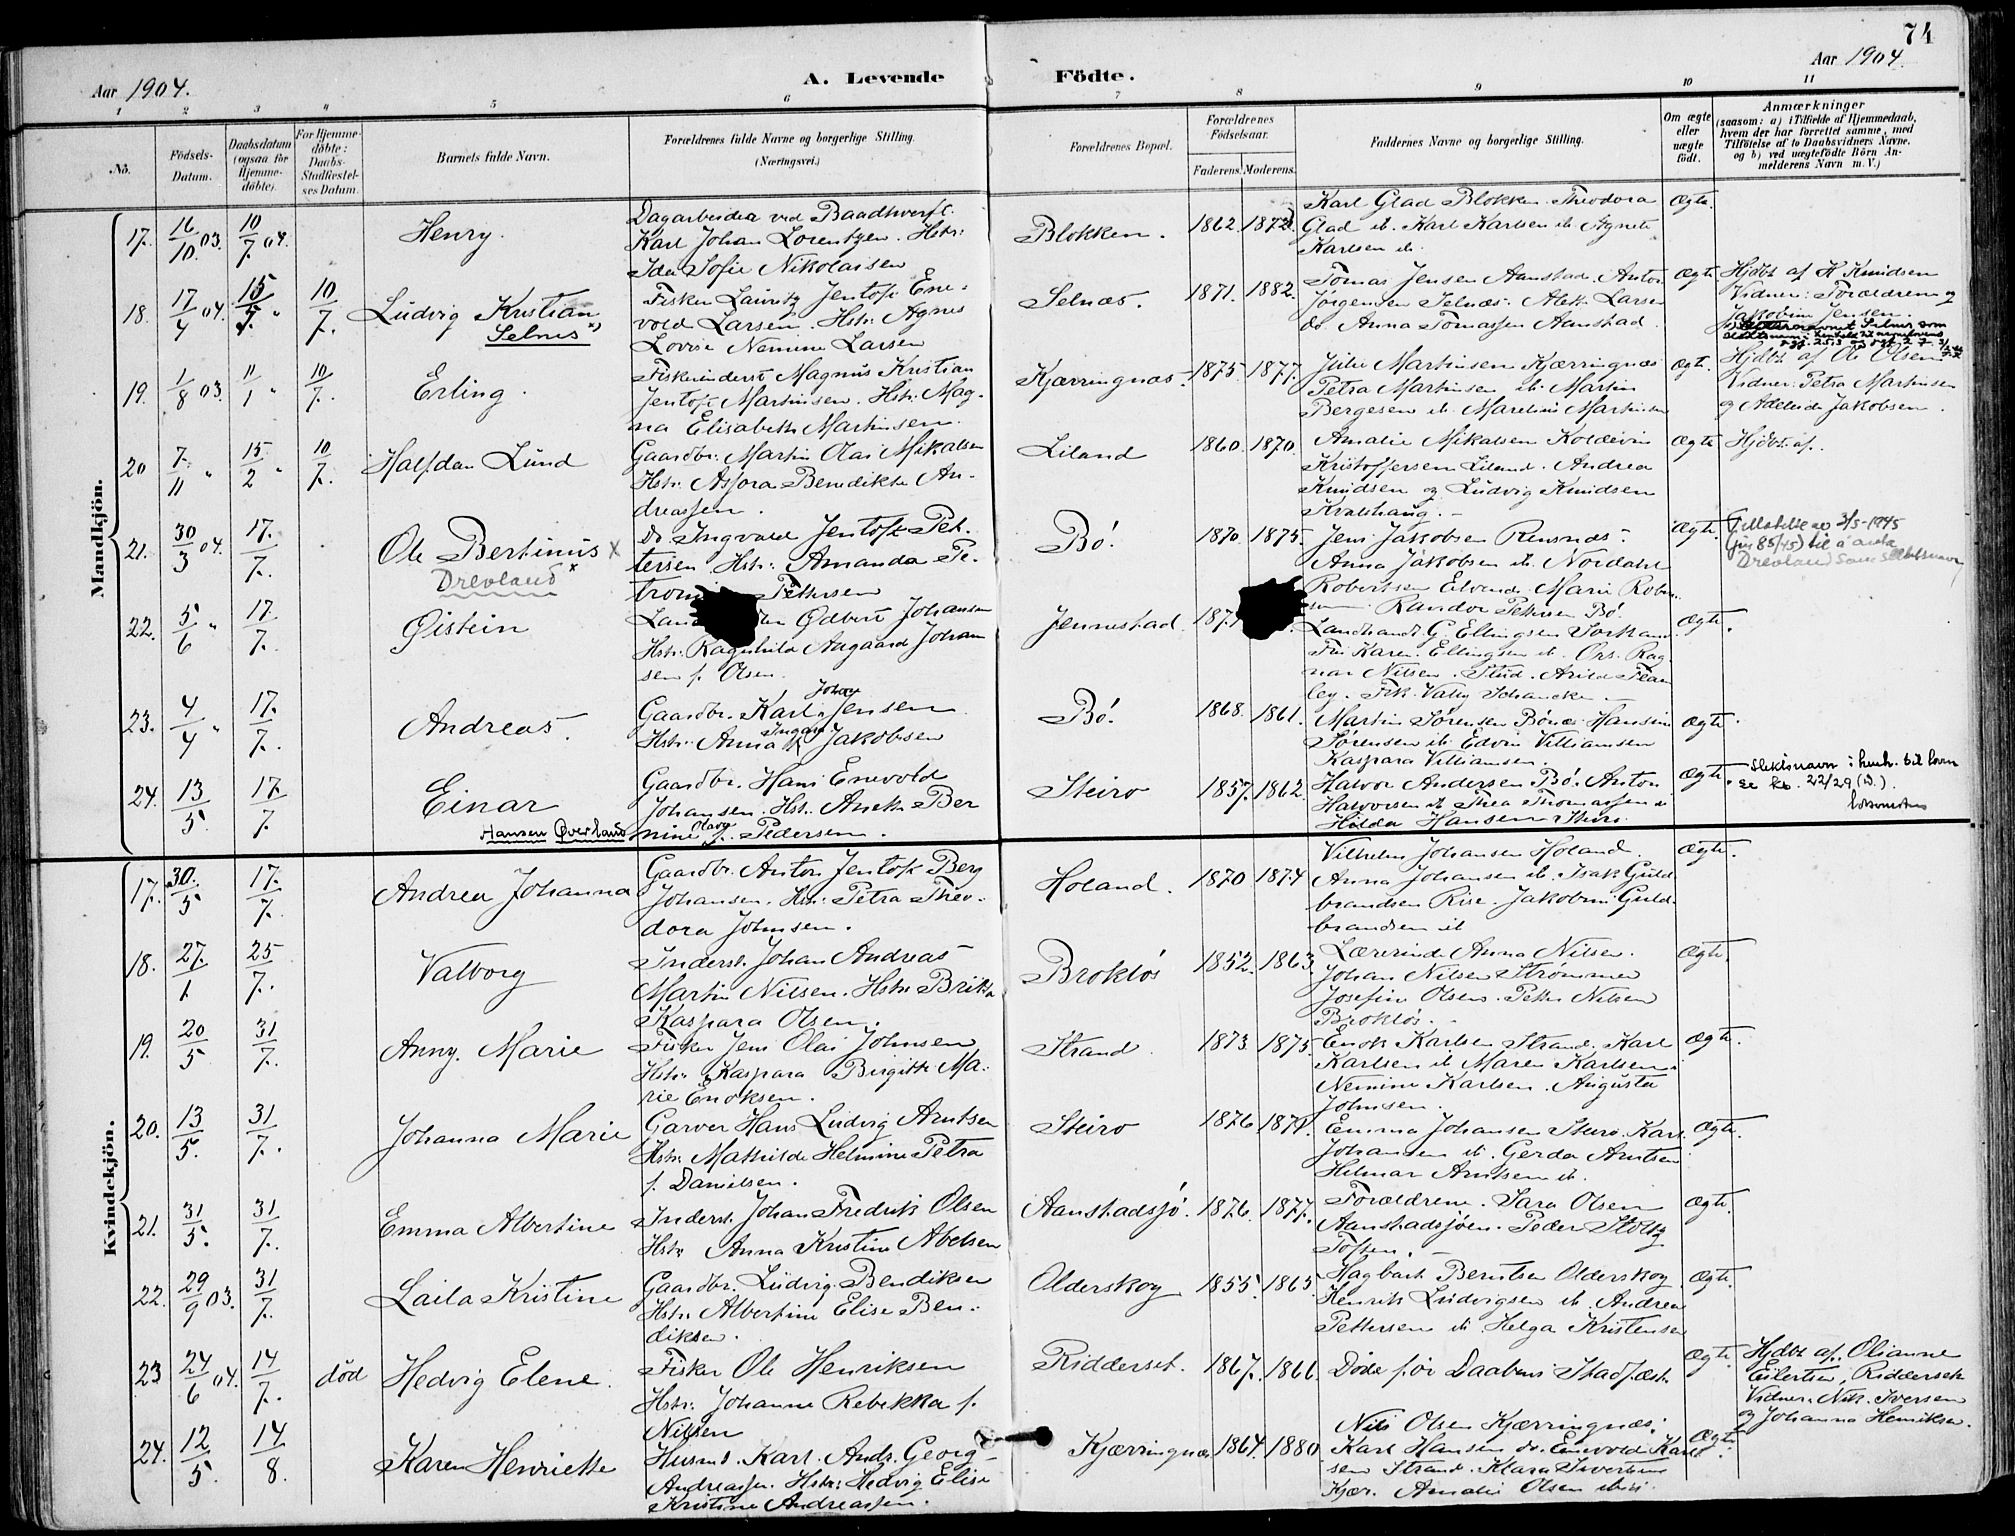 74
Aar 1904.
A. Levende Födte.
Aar 1904.
1 2 3 4 5 6 7 8 9 10 11
No.
Födsels-Datum.
Daabsdatum (ogsaa for Hjemme-döbte).
For Hjemme-döbte: Daabs-Stadfæstel-ses Datum.
Barnets fulde Navn.
Forældrenes fulde Navne og borgerlige Stilling.
(Næringsvei.)
Forældrenes Bopæl.
Forældrenes Födselsaar.
Faderens. Moderens.
Faddernes Navne og borgerlige Stilling.
Om ægte eller uægte født.
Anmærkninger
(saasom: a) i Tilfælde af Hjemmedaab,
hvem der har forrettet samme, med
Tilföielse af to Daabsvidners Navne,
og b) ved uægtefödte Börn An-
melderens Navn m. V.)
Mandkjön.
17. 16/10 03. 10/7 04. Henry.
Dagarbeider ved Baadhverft.
Karl Johan Lorentzen. Hstr:
Ida Sofie Nikolaisen
Blokken. 1862. 1872
Karl Glad Blokken Theodora
Glad ib. Karl Karlsen ib. Agnete
Karlsen ib.
Ægte.
18. 17/4 04. 15/5 " 10/7. Ludvig Kristian
Selnes
Fisker Lauritz Jentoft Ene-
vold Larsen. Hstr: Agnes
Lovise Nemine Larsen
Selnæs. 1871. 1882.
Tomas Jensen Aanstad. Anton
Jørgensen Selnæs. Alek. Larsen
do Anna Tomassen Aanstad.
Ægte
Hjdbt af K Knudsen
Vidner: Forældrene og
Jakobine Jensen.
19. 1/8 03. 11/1 " 10/7. Erling.
Fiskerinderst Magnus Kristian
Jentoft Martinsen. Hstr: Mag-
na Elisabeth Martinsen.
Kjærringnæs. 1875. 1877.
Julie Martinsen Kjærringnæs
Petra Martinsen ib. Martin
Bergesen ib. Mareline Martinsen
Ægte.
Hjdbt af Ole Olsen
Vidner: Petra Martinsen
og Adeleide Jakobsen.
20 7/11 " 15/2 " 10/7. Halfdan Lund
Gaardbr. Martin Olai Mikalsen
Hstr: Assora Benedikte An-
dreassen.
Liland 1860. 1870.
Amalie Mikalsen Koldevin
Kristoffersen Liland. Andrea
Knudsen og Ludvig Knudsen
Kvalshaug.
Ægte Hjdbt af.
21. 30/3 04. 17/7. Ole Bertinus x
Drevland x
do Ingvald Jentoft Pet-
tersen Hstr: Amanda Pe-
Pettersen
Bö. 1870. 1875.
Jens Jakobsen Rensnæs.
Anna Jakobsen ib. Nordahl
Robertsen Marie Robert-
sen Randor Pettersen Bö.
Ægte.
Tillatelse av 3/5-1945
(jnr 85/45) til å anta
Drevland som slektsnavn
22. 5/6 " 17/7. Øistein
Odbert Johansen
Hstr: Ragnhild Aagaard Johan
sen f. Olsen.
Jennestad.
Landhandl. G. Ellingsen Sortland.
Fru Karen Ellingsen ib. Ors. Rag-
nar Nilsen. Stud. Arild
Frk. Vally Schancke.
Ægte.
23. 4/4 " 17/7. Andreas.
Gaardbr. Karl Johan Jensen
Hstr: Anna Jakobsen
Bö. 1868. 1861.
Martin Sørensen Bönæs. Hansine
Sørensen ib. Edvin Villiamsen
Kaspara Villiamsen.
Ægte.
24. 13/5. 17/7. Einar
Hansen Øverland
Gaardbr. Hans Enevold
Johansen. Hst. Anek. Ber
nine Olava f. Pedersen.
Steiro 1857. 1862.
Halvor Andersen Bö. Anton
Halvorsen ib Thea Thomassen ib
Hilda Hansen Steiro.
Ægte.
Slektsnavn i henh. til loven
se kb. 22/29 (d.).
Kvindekjön.
17. 30/5 17/7. Andrea Johanna
Gaardbr. Anton Jentoft Berg
Johansen. Hstr: Petra Theo-
dora Johnsen.
Holand. 1870 1874
Vilhelm Johansen Holand.
Anna Johansen ib. Isak Guld-
brandsen Rise. Jakobine Guld-
brandsen ib
Ægte.
18. 27/1. 25/7. Valborg
Inderst. Johan Andreas
Martin Nilsen. Hstr Brita
Kaspara Olsen.
Brokløs 1852. 1863.
Lærerinde Anna Nilsen.
Johan Nilsen Strømmen
Josefine Olsens. Petter Nilsen
Brokløs.
Ægte.
19. 20/5 31/7. Anny. Marie
Fisker Jens Olai Johnsen
Hstr. Kaspara Birgitte Ma-
rie Enoksen.
Strand. 1873. 1875.
Enok Karlsen Strand. Karl
Karlsen ib Maren Karlsen.
Nemine Karlsen. Augusta
Johnsen.
Ægte.
20. 13/5. 31/7. Johanna Marie
Garver Hans Ludvig Arntsen
Hstr. Mathilde Helmine Petra
f. Danielsen.
Steiro 1876 1879.
Emma Johansen Steiro. Karl
Johansen ib. Gerda Arntsen
Hilmar Arntsen ib.
Ægte.
21. 31/5. 31/7. Emma Albertine
Inderst. Johan Fredrik Olsen
Hstr Anna Kristine Abelsen
Aanstadsjö. 1876. 1877.
Forældrene. Sara Olsen
Aanstadsjöen. Peder Stoltz
Toften.
Ægte.
22. 29/9 03. 31/7. Laila Kristine
Gaardbr. Ludvig Bendiksen
Hstr. Albertine Elise Ben-
diksen.
Olderskog 1855. 1865.
Hagbart Berntsen Olderskog
Henrik Ludvigsen ib. Andrea
Pettersen ib. Helga Kristensen
Ægte.
23 24/6 04. 14/7. død Hedvig Elene.
Fisker Ole Henriksen
Hstr: Johanne Rebekka f.
Nilsen
Ridderset. 1867. 1866
Døde før Daabens Stadfæst.
Ægte.
Hjdbt af. Olianne
Eilertsen, Ridderseth
Vidner. Nik. Iversen
og Johanna Henriksen.
24. 12/5. 14/8. Karen Henriette
Husmd. Karl. Andr. Georg
Andreassen. Hstr: Hedvig Elise
Kristine Andreassen.
Kjærringnæs 1864. 1880
Nils Olsen Kjærringnæs.
Karl Hansen do. Enevold Karl-
sen Strand. Klara Sivertsen
Kjær. Amalie Olsen ibid.
Ægte.